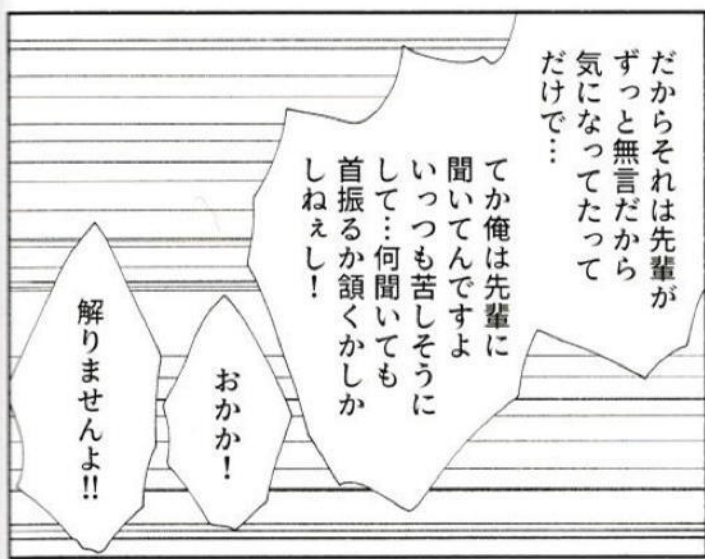 だからそれは先輩が
ずっと無言だから
気になってたって
だけで…
てか俺は先輩に
聞いてんですよ
いっつも苦しそうに
して…何聞いても
首振るか頷くかしか
しねぇし！
おかか！
解りませんよ!!